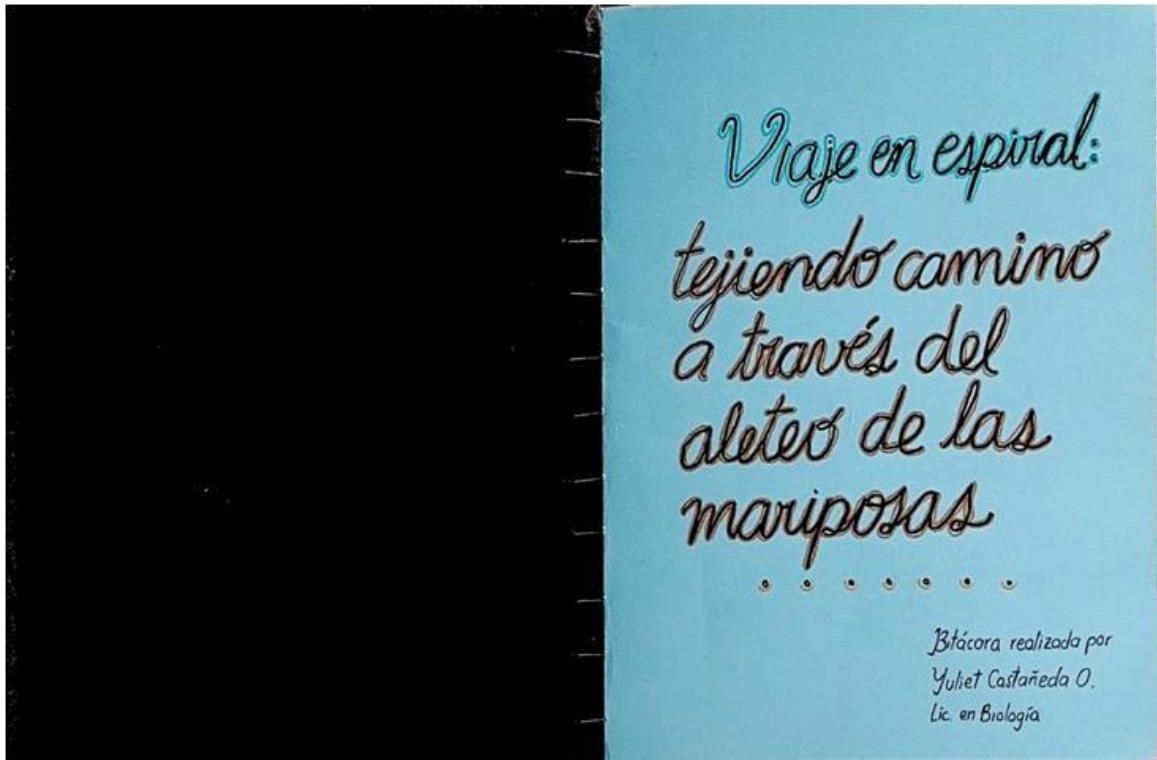 Viaje en espiral:
tejiendo camino
a través del
aleteo de las
mariposas
Bitácora realizada por
Yuliet Castañeda O.
Lic. en Biología